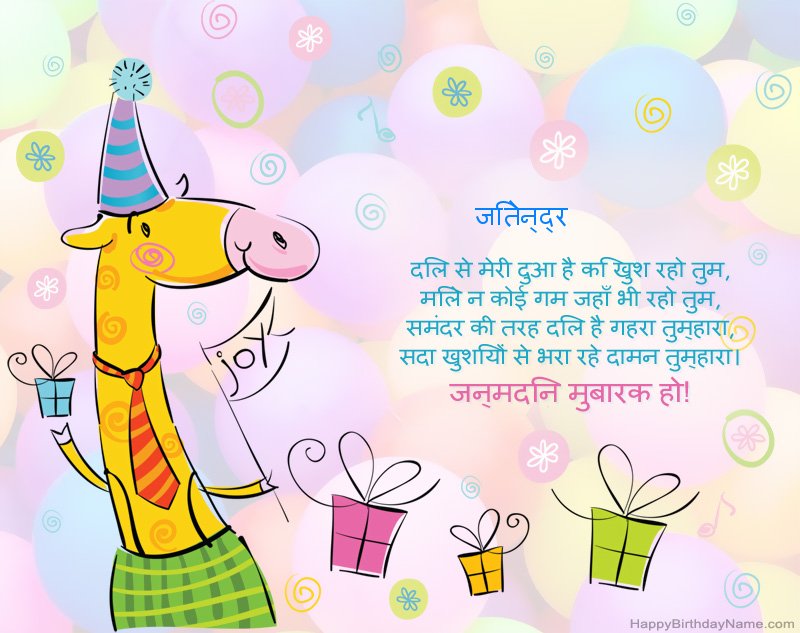 जितेन्द्र
दिल से मेरी दुआ है कि खुश रहो तुम,
मिले न कोई गम जहाँ भी रहो तुम,
समंदर की तरह दिल है गहरा तुम्हारा,
सदा खुशियों से भरा रहे दामन तुम्हारा।
जन्मदिन मुबारक हो!
joy
HappyBirthdayName.com